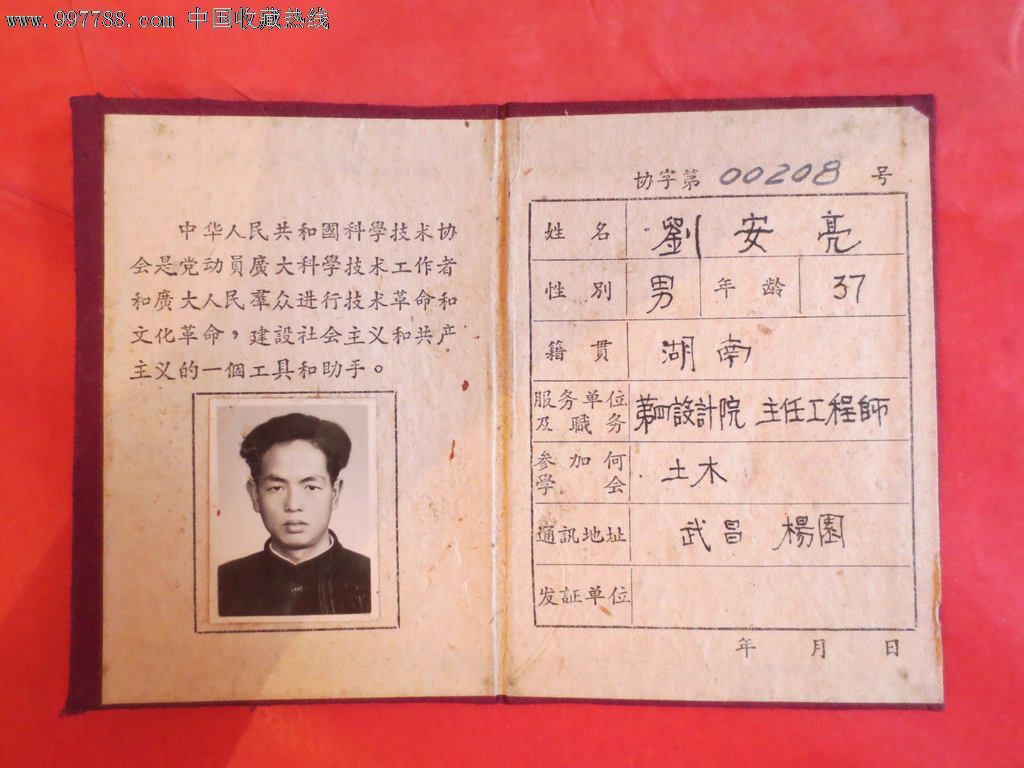 www.997788.com 中国收藏热线
中华人民共和國科學技术协
会是党动員廣大科學技术工作者
和廣大人民羣众进行技术革命和
文化革命，建設社会主义和共产
主义的一個工具和助手。
协字第 00208 号
姓名 劉安亮
性別 男 年龄 37
籍貫 湖南
服务单位
及職务 第四設計院 主任工程師
参加何
學会 土木
通訊地址 武昌 楊園
发証单位
年 月 日